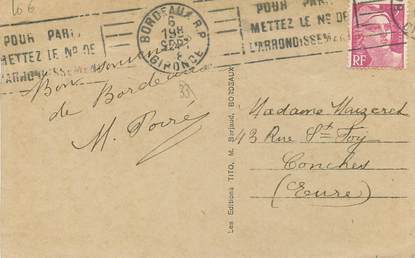 106
POUR PARIS
METTEZ LE No DE
L'ARRONDISSEMENT
BORDEAUX R.P.
6
19H
SEPT
GIRONDE
POUR PARIS
METTEZ LE No DE
L'ARRONDISSEMENT
RF
Bon souvenir
de Bordeaux
33
M. Poiré
Les Editions TITO, M. Berjaud, BORDEAUX
Madame
43 Rue Ste Foy
Conches
(Eure)